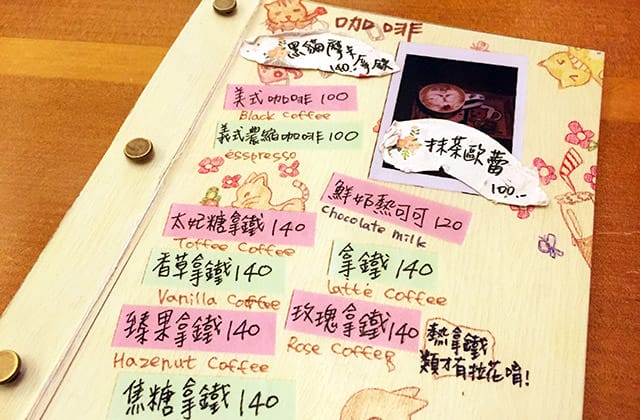 咖啡
黑貓摩卡厚麻
140.
美式咖啡 100
Black Coffee
義式濃縮咖啡 100
esspresso
抹茶歐蕾
100.
太妃糖拿鐵 140
Toffee Coffee
鮮奶熱可可 120
Chocolate milk
香草拿鐵 140
Vanilla Coffee
拿鐵 140
latte coffee
榛果拿鐵 140
Hazenut Coffee
玫瑰拿鐵 140
Rose Coffee
熱拿鐵
類才有拉花唷!
焦糖拿鐵 140